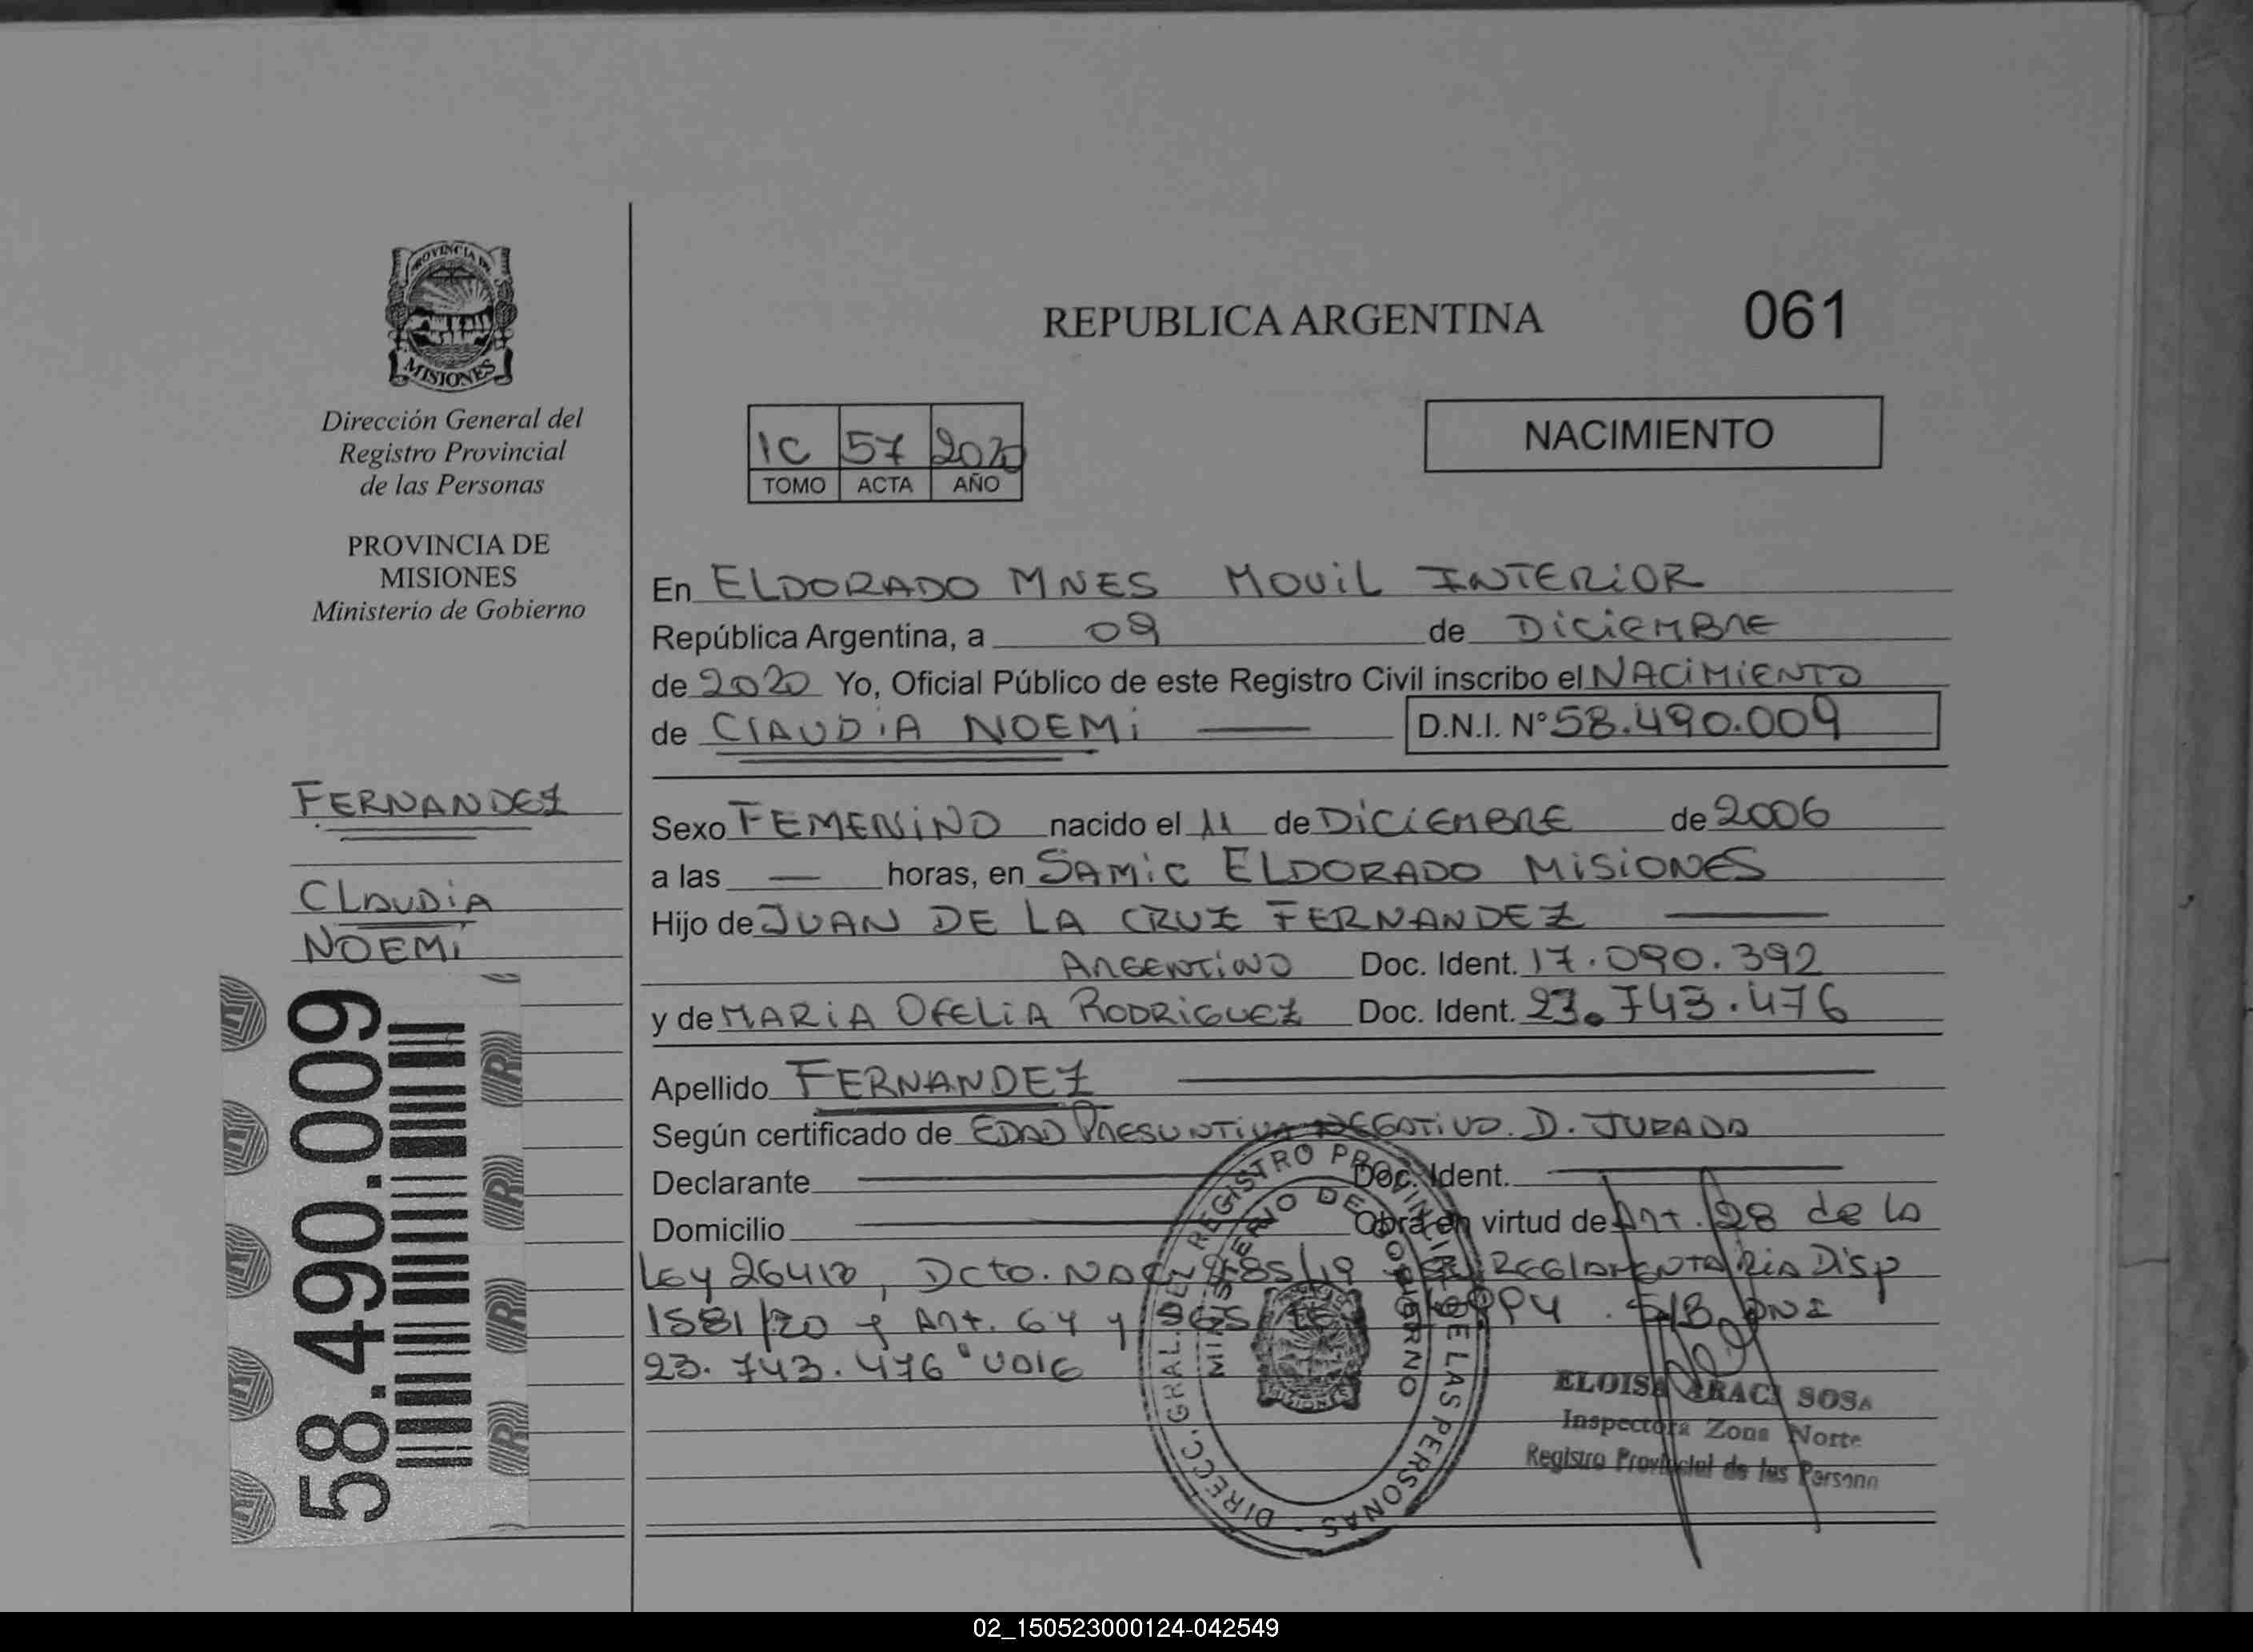 PROVINCIA DE
MISIONES
Dirección General del
Registro Provincial
de las Personas
PROVINCIA DE
MISIONES
Ministerio de Gobierno
FERNANDEZ
CLAUDIA
NOEMI
58.490.009
REPUBLICA ARGENTINA
061
NACIMIENTO
1C 57 2020
TOMO ACTA AÑO
En ELDORADO MNES MOVIL INTERIOR
República Argentina, a 09 de DICIEMBRE
de 2020 Yo, Oficial Público de este Registro Civil inscribo el NACIMIENTO
de CLAUDIA NOEMI D.N.I. N° 58.490.009
Sexo FEMENINO nacido el 11 de DICIEMBRE de 2006
a las — horas, en SAMIC ELDORADO MISIONES
Hijo de JUAN DE LA CRUZ FERNANDEZ
ARGENTINO Doc. Ident. 17.090.392
y de MARIA OFELIA RODRIGUEZ Doc. Ident. 23.743.476
Apellido FERNANDEZ
Según certificado de EDAD PRESUNTIVA NEGATIVO. D. JURADA
Declarante Doc. Ident.
Domicilio Obra en virtud de Art. 28 de la
Ley 26413, Dcto. NAC REGLAMENTARIA Disp
1581/20 y Art. 64 y DNI
23.743.476 "VALE
DIRECC. GRAL. DEL REGISTRO PROVINCIAL DE LAS PERSONAS -
MINISTERIO DE GOBIERNO
ELOISA ARACI SOSA
Inspectora Zona Norte
Registro Provincial de las Persona
02_150523000124-042549